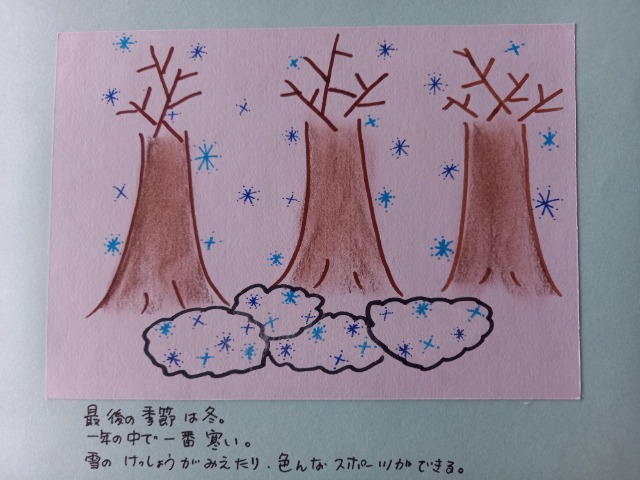 最後の季節は冬。
一年の中で一番寒い。
雪のけっしょうがみえたり、色んなスポーツができる。